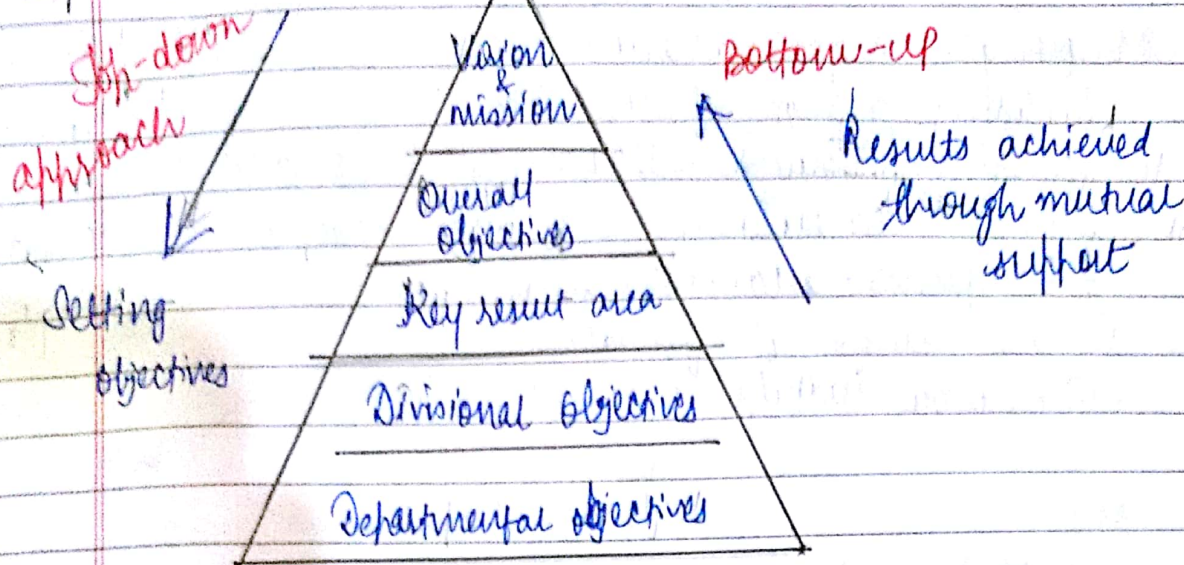 Top-down
approach
Setting
objectives
Vision
&
mission
Overall
objectives
Key result area
Divisional objectives
Departmental objectives
Bottom-up
Results achieved
through mutual
support